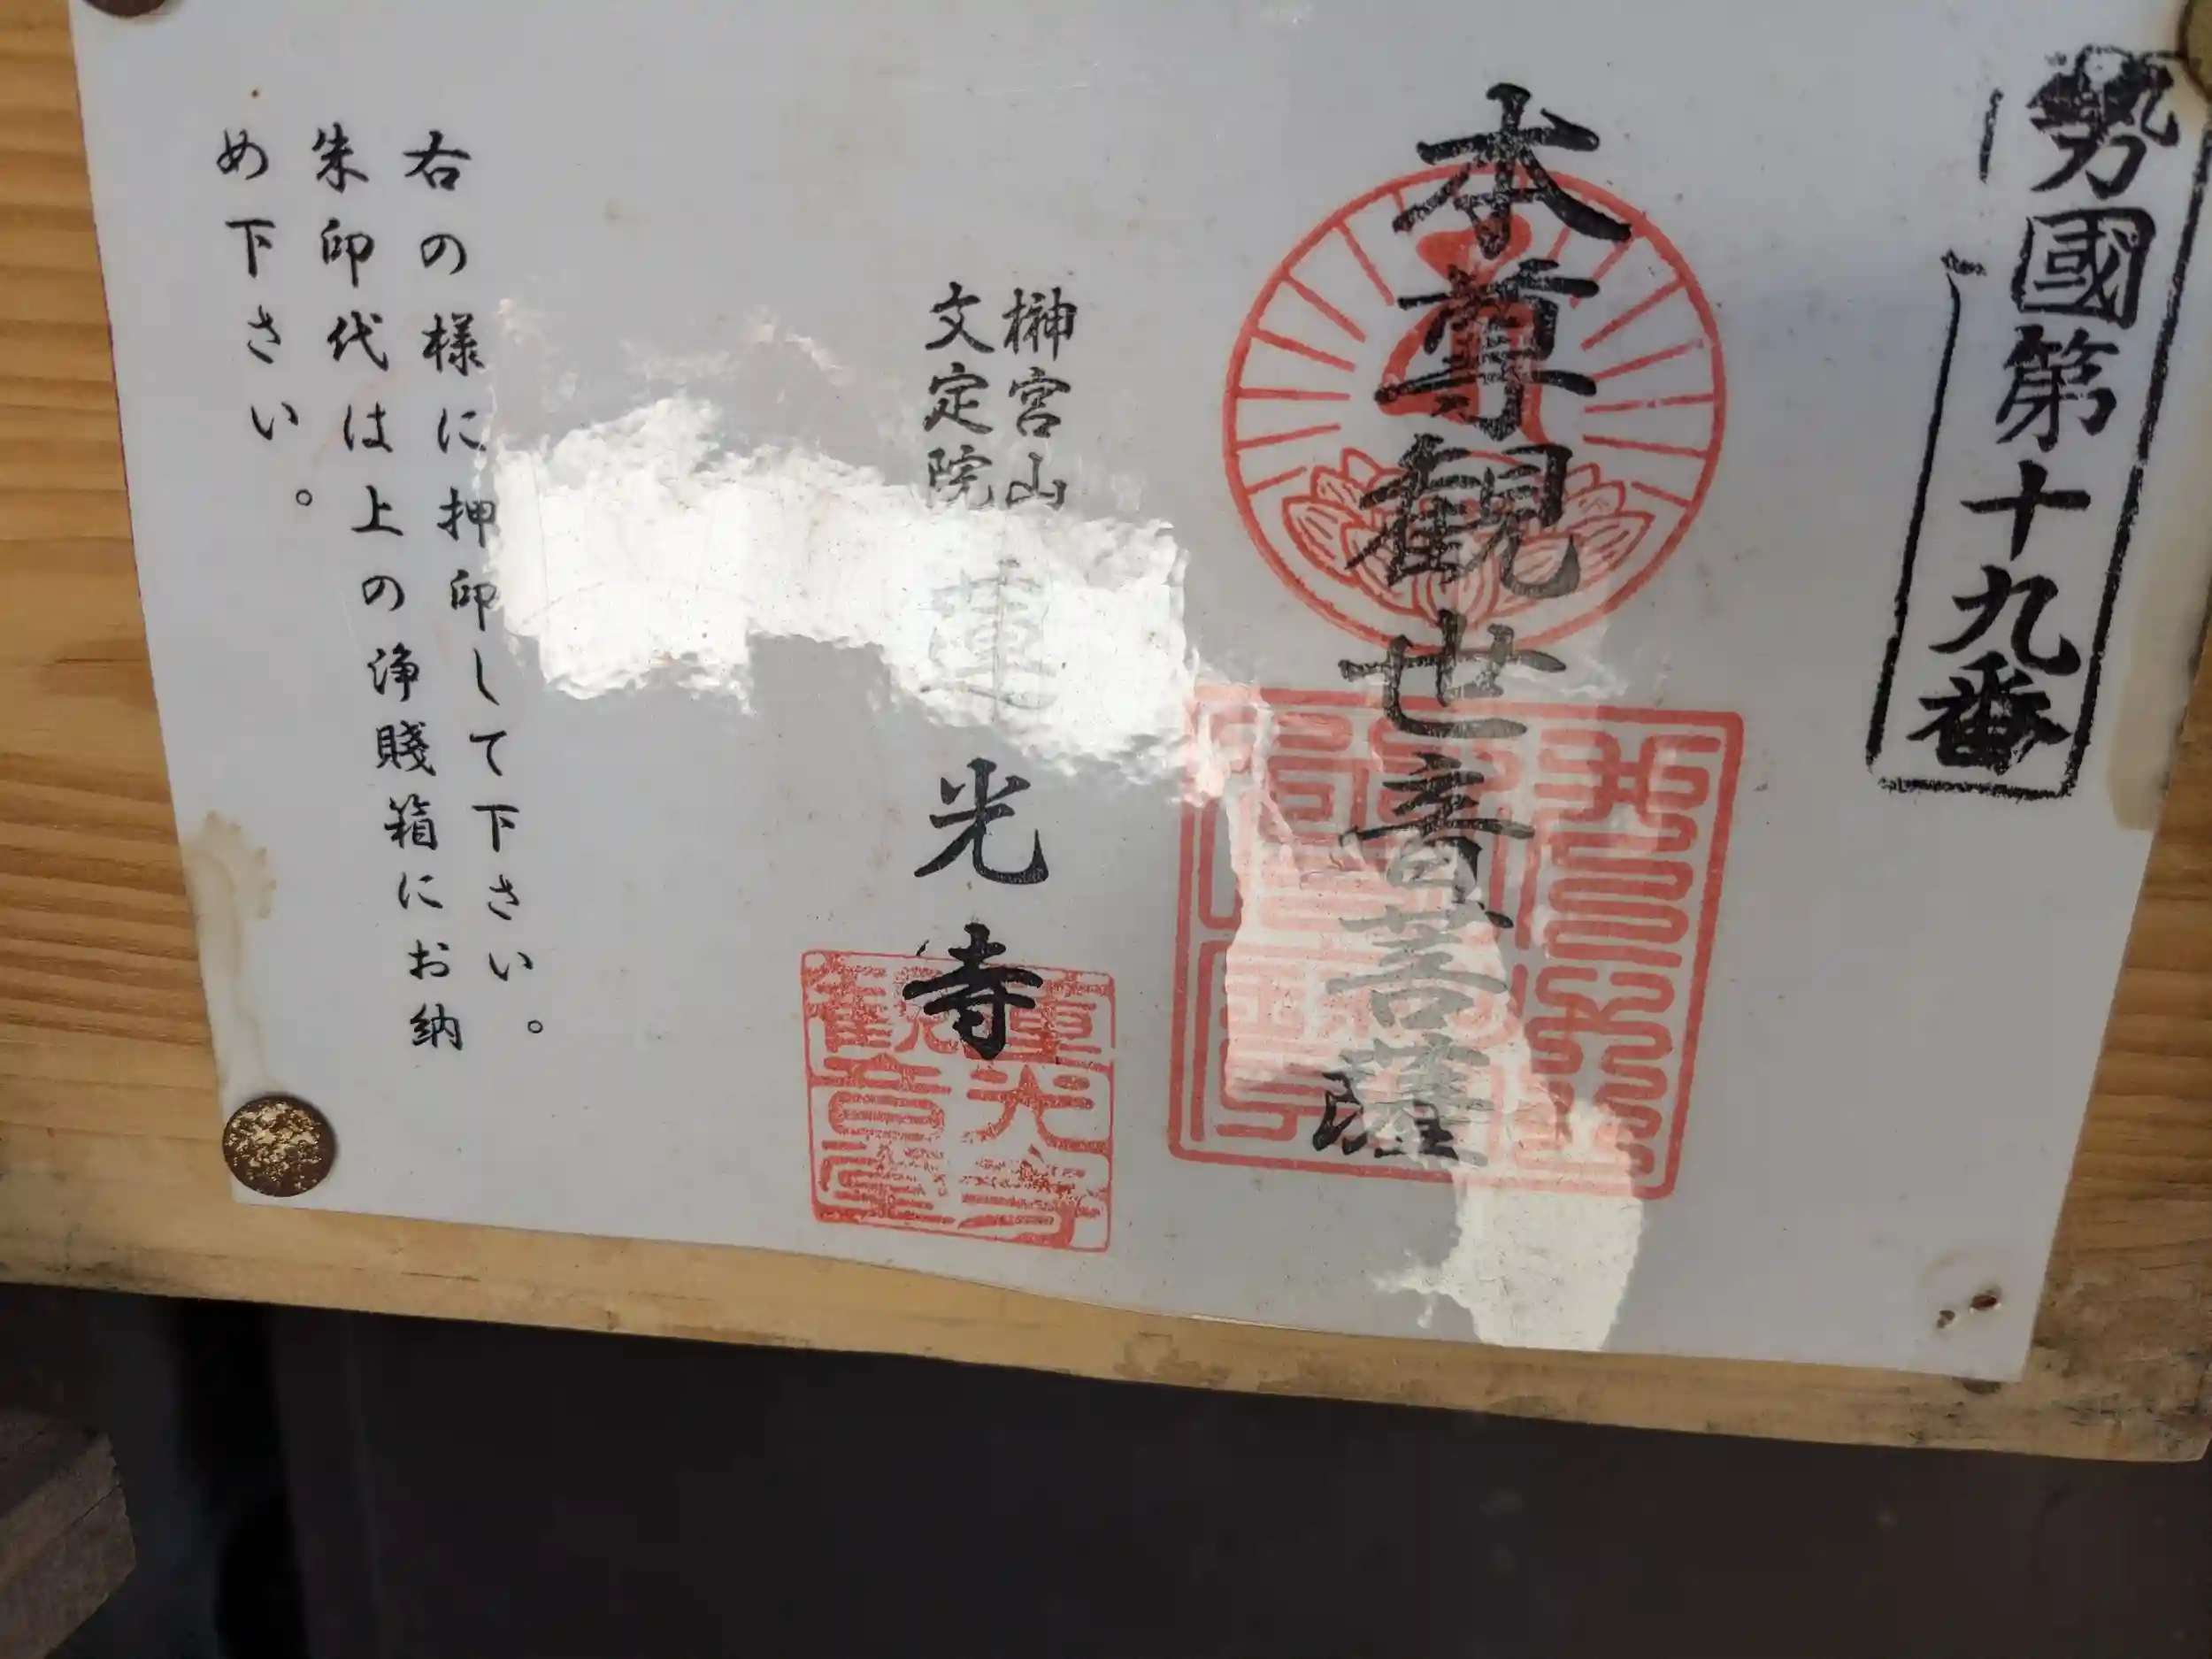 勢國第十九番
本尊觀世音菩薩
榊宮山
文定院
蓮光寺
蓮光寺
觀音堂
右の様に押印して下さい。
朱印代は上の浄賤箱にお納
め下さい。